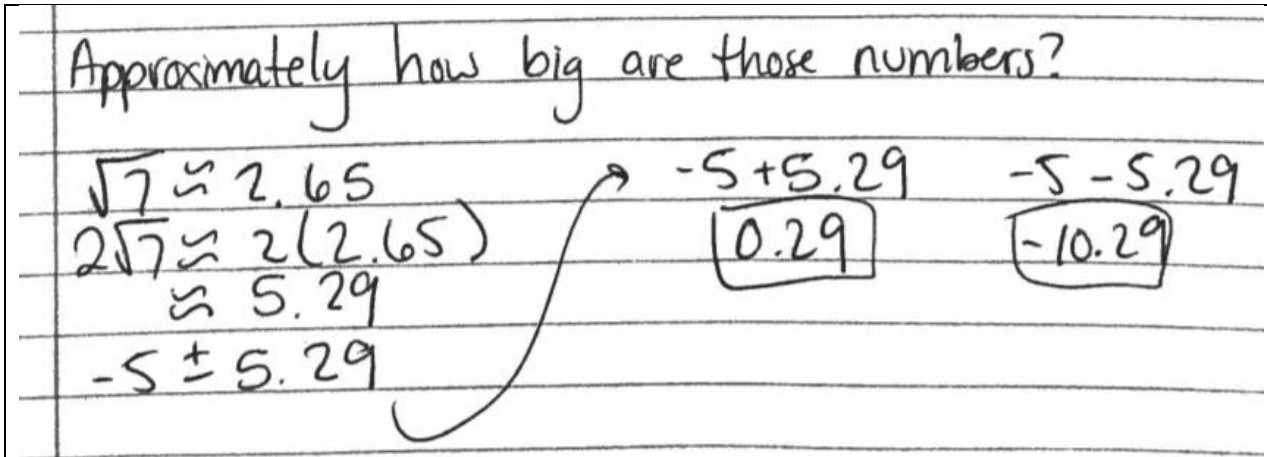 Approximately how big are those numbers?
√7 ≈ 2.65
2√7 ≈ 2(2.65)
≈ 5.29
-5 ± 5.29
-5+5.29
0.29
-5-5.29
-10.29